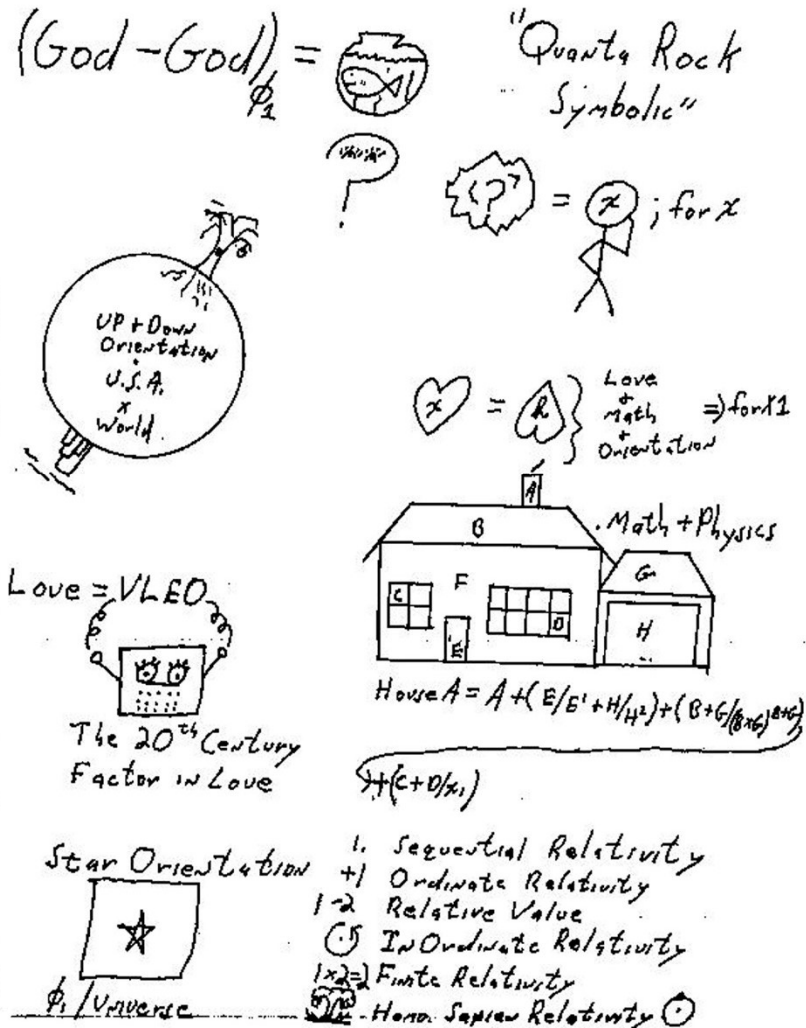 (God - God)ϕ1 =
"Quanta Rock
Symbolic"
(?) = x ; for x
UP + Down
Orientation
U.S.A.
x
World
x = h } Love
+
Math
+
Orientation
=> for x1
A
B
. Math + Physics
C
F
G
D
E'
H
House A = A + (E/E' + H/H²) + (B+G/(B×G)^B+G)
+(C+D/x1)
Love = VLEO
The 20th Century
Factor in Love
Star Orientation
ϕ1 / Universe
1. Sequential Relativity
+1 Ordinate Relativity
1-2 Relative Value
InOrdinate Relativity
1×2=2 Finite Relativity
Homo Sapien Relativity